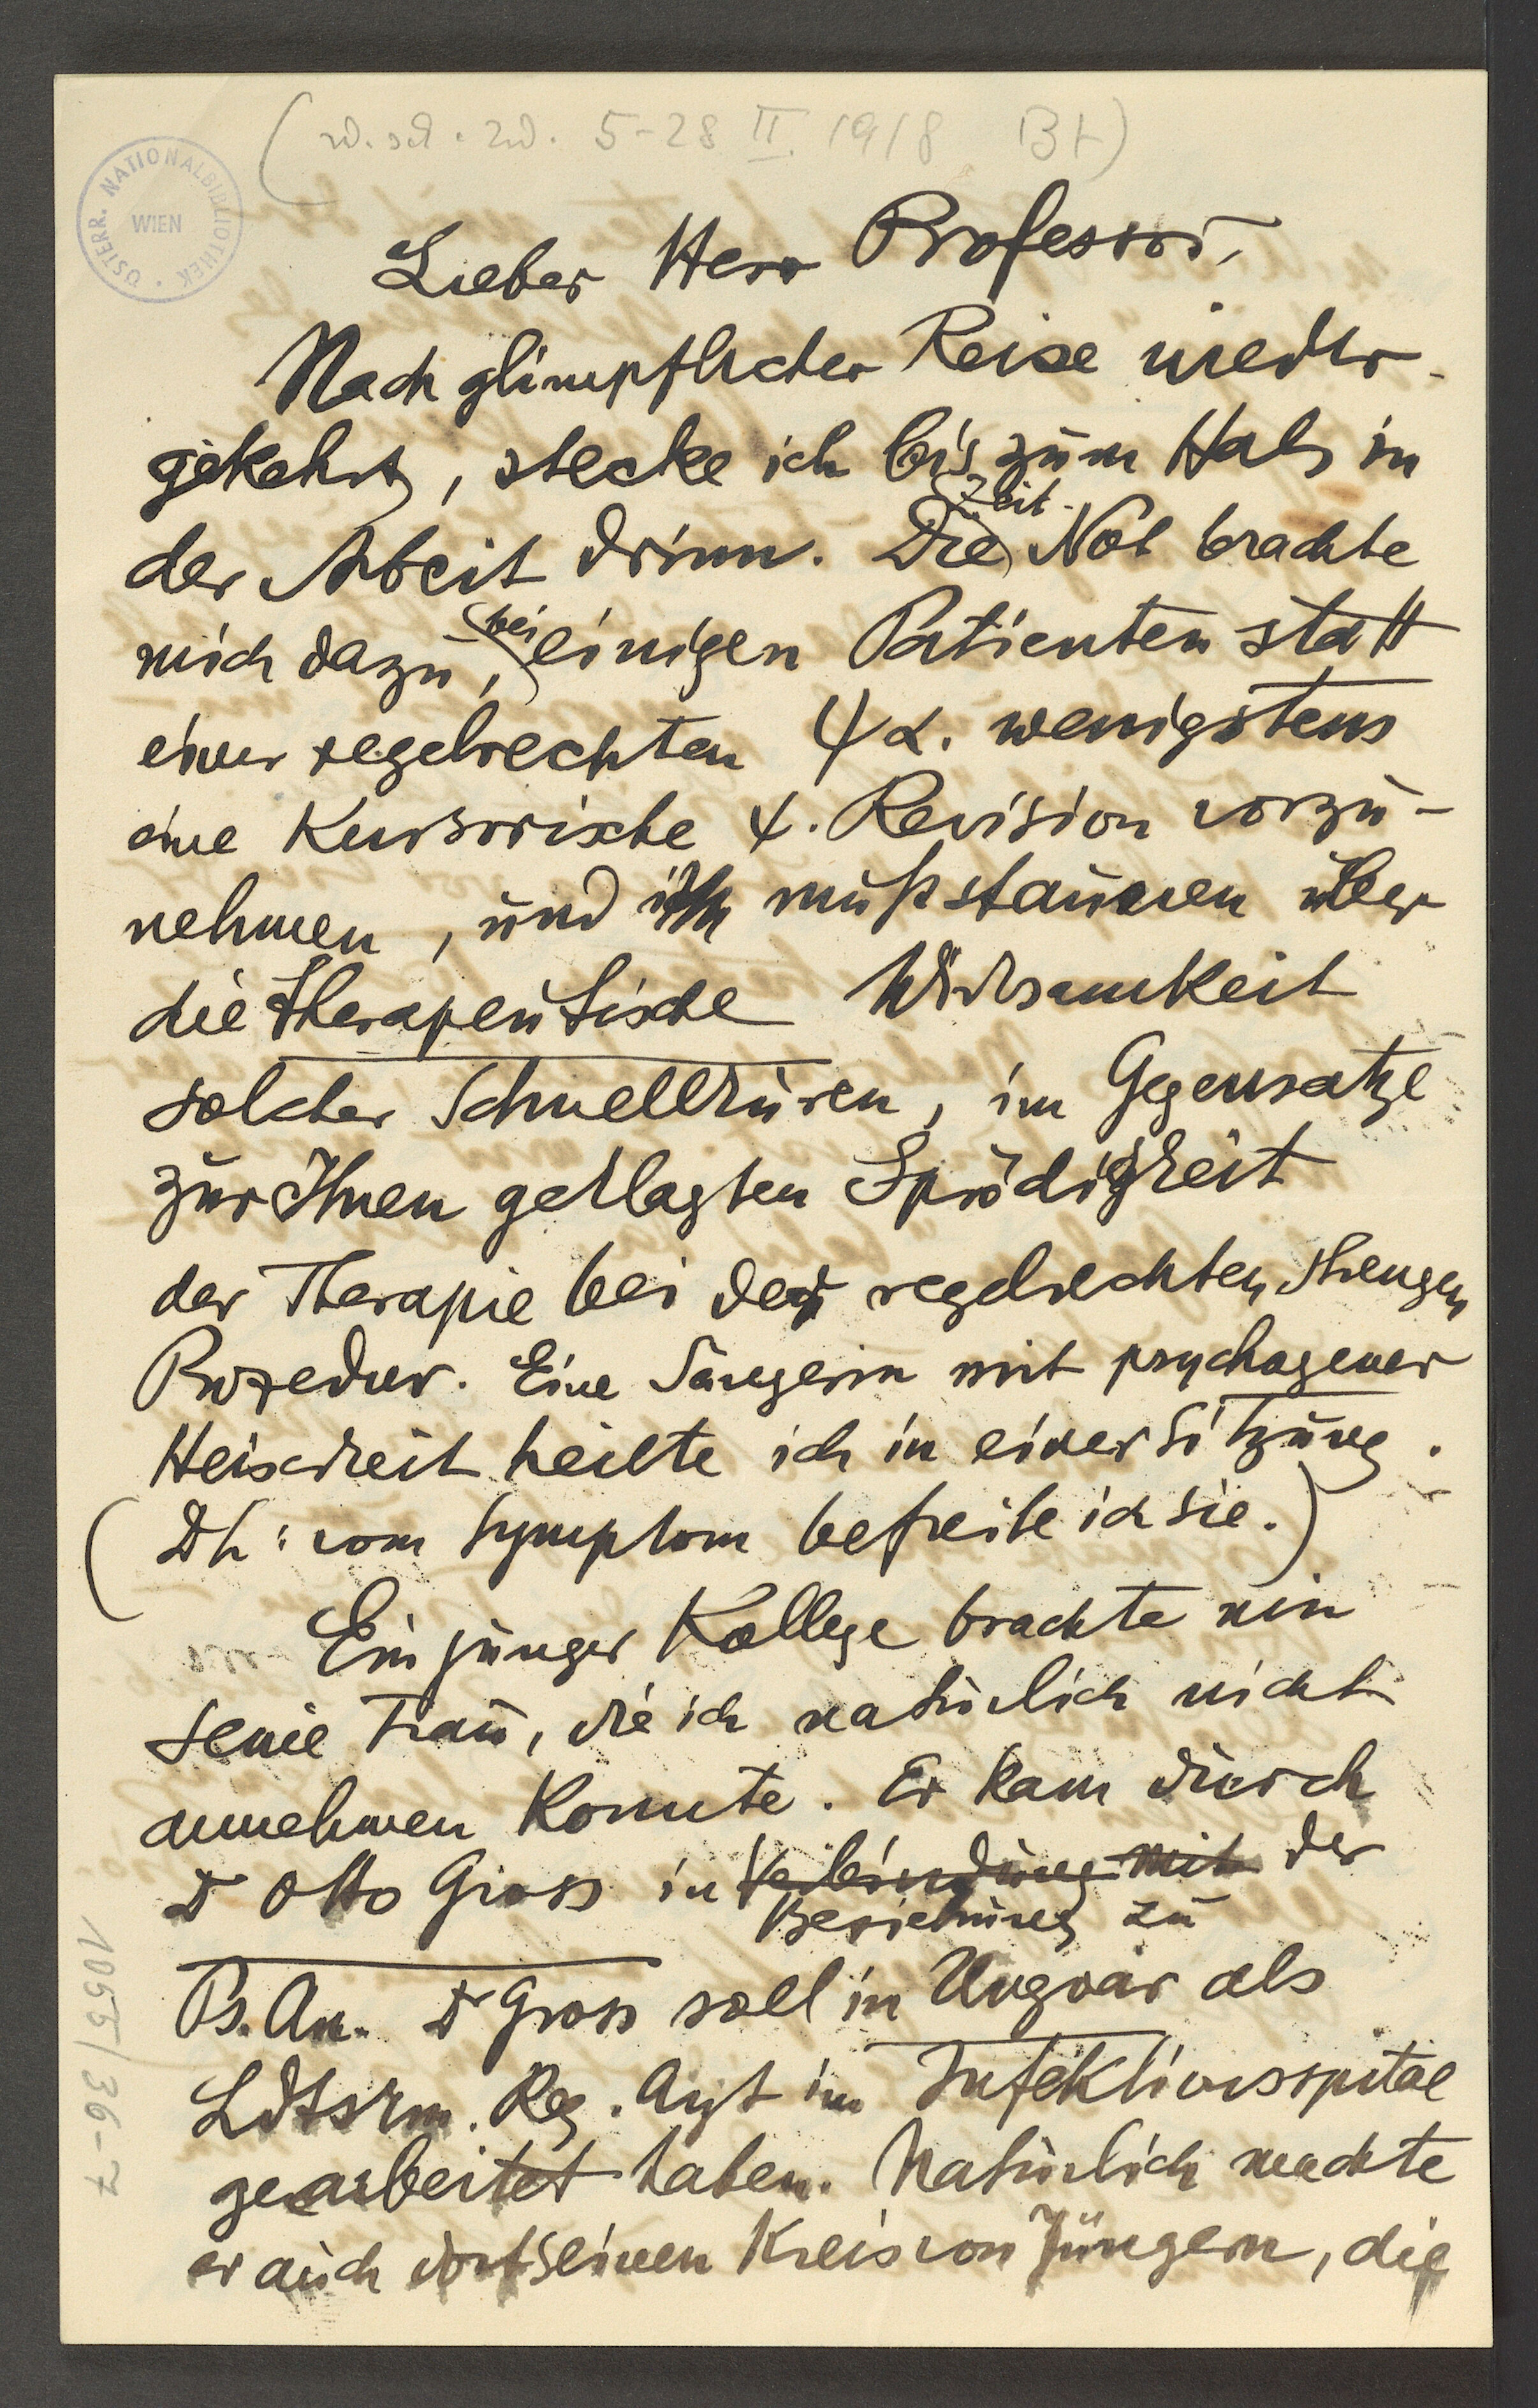 (w. sch. zw. 5-28 II. 1918 Bt)
ÖSTERR. NATIONALBIBLIOTHEK · WIEN
Lieber Herr Professor,
Nach glimpflicher Reise wieder-
gekehrt, stecke ich bis zum Hals in
der Arbeit drinn. Die Zeit-Not brachte
mich dazu, bei einigen Patienten statt
einer regelrechten ψα. wenigstens
eine Kursorische ψ. Revision vorzu-
nehmen, und ich muß staunen über
die therapeutische Wirksamkeit
solcher Schnellkuren, im Gegensatze
zur Ihnen geklagten Sprödigkeit
der Therapie bei der regelrechten strengen
Prozedur. Eine Sängerin mit psychogener
Heiserkeit heilte ich in einer Sitzung.
(Dh: vom Symptom befreite ich sie.)
Ein junger Kollege brachte mir
seine Frau, die ich natürlich nicht
annehmen Konnte. Er kam durch
Dr Otto Gross in Verbindung mit der
Beziehung zu
Ps. An. Dr Gross soll in Ungvár als
Ldtstrm. Reg. Arzt im Infektionsspital
gearbeitet haben. Natürlich machte
er auch dort seinen Kreis von Jüngern, die
1055/36-7